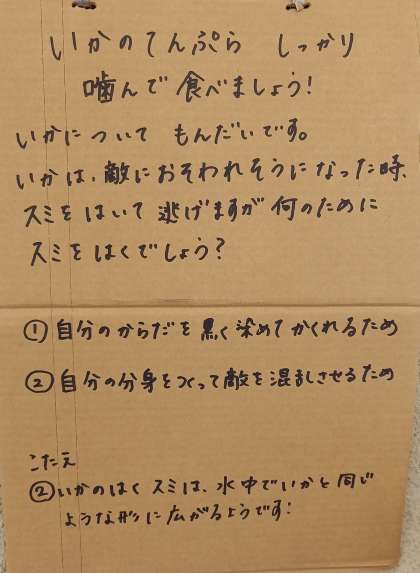 いかのてんぷら しっかり
噛んで食べましょう!
いかについて もんだいです。
いかは、敵におそわれそうになった時、
スミをはいて逃げますが何のために
スミをはくでしょう?
① 自分のからだを黒く染めてかくれるため
② 自分の分身をつくって敵を混乱させるため
こたえ
② いかのはくスミは、水中でいかと同じ
ような形に広がるようです!